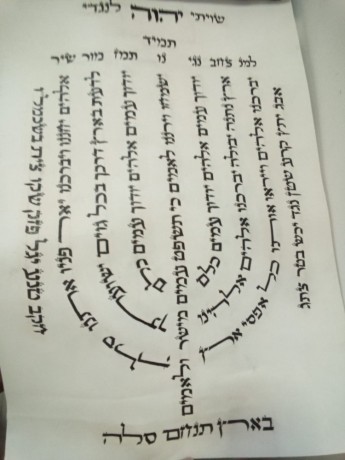 שויתי יהוה לנגדי
תמיד
למנ צח ב נגי נו תמז מור שיר
אבג יתץ קרע שטן נגד יכש בטר צתג
יברכנו אלהים וייראו אותו כל אפסי ארץ
ארץ נתנה יבולה יברכנו אלהים אלהינו
יודוך עמים אלהים יודוך עמים כלם
ישמחו וירננו לאמים כי תשפט עמים מישור ולאמים
יודוך עמים אלהים יודוך עמים כלם
לדעת בארץ דרכך בכל גוים ישועתך
אלהים יחננו ויברכנו יאר פניו אתנו סלה
חקב טנע יגל פזק שקו צית
בארץ תנחם סלה